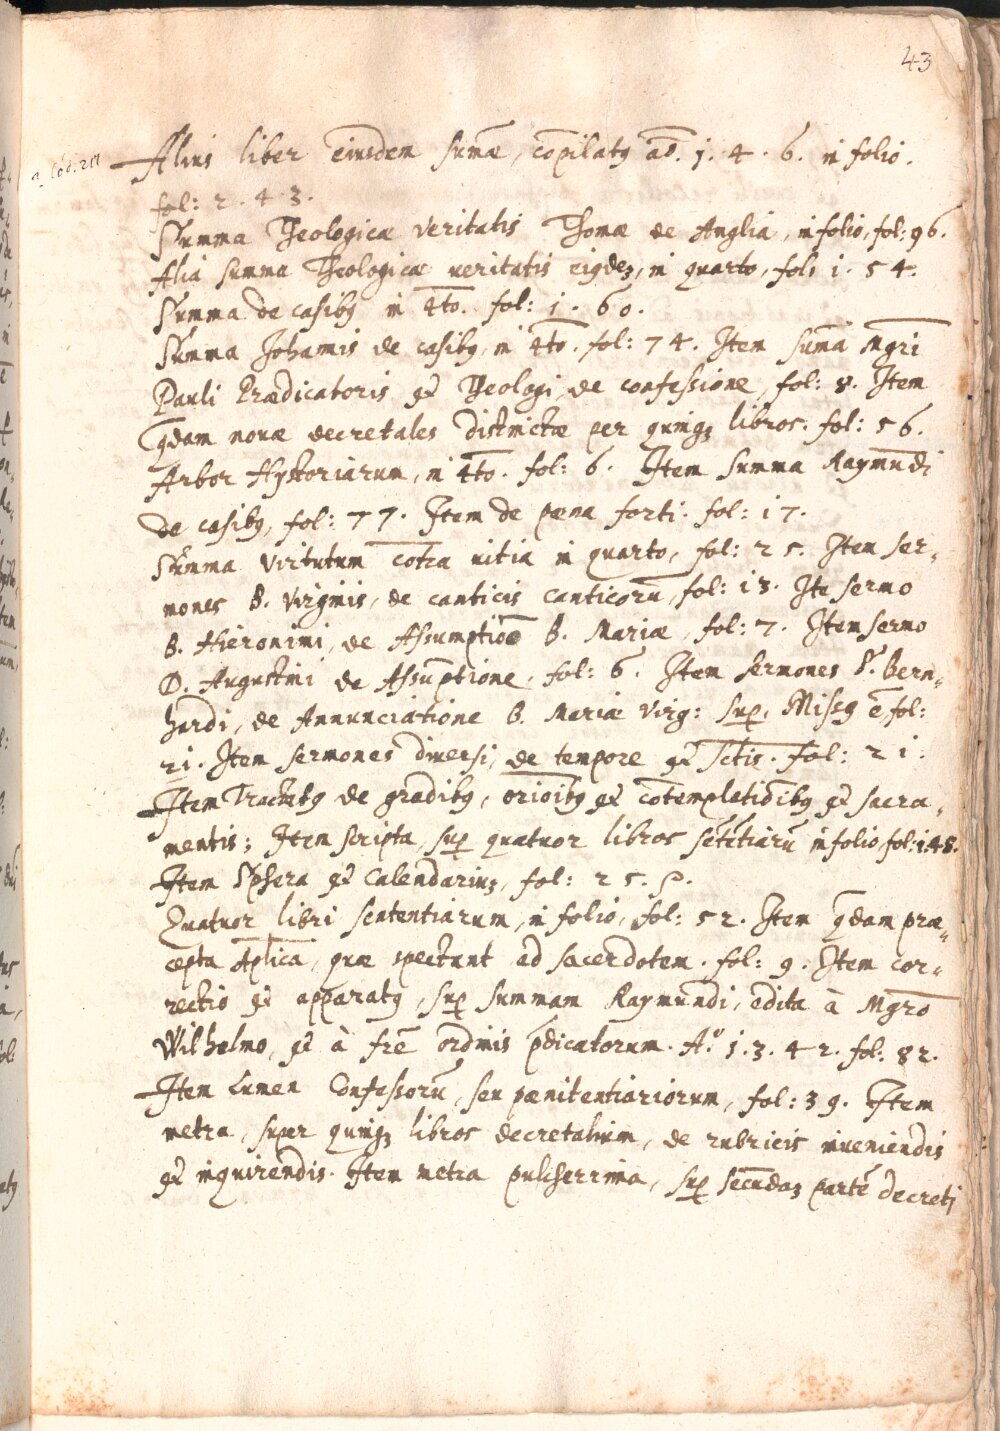 43
Alius liber eiusdem sum̄æ, cōpilatꝰ aō. 1. 4. 6. in folio.
fol: 2. 4. 3.
Summa Theologicæ veritatis Thomæ de Anglia, in folio, fol: 96.
Alia summa Theologicæ ueritatis eiꝰdeꝫ, in quarto, fol: 1. 54.
Summa de casibꝰ in 4to. fol: 1. 60.
Summa Johannis de casibꝰ, in 4to. fol: 74. Item sum̄a Mgri
Pauli Prædicatoris et Theologi, de confessione, fol: 8. Item
qdam nouæ decretales distinctæ per quinqꝫ libros. fol: 56.
Arbor Hystoriarum, in 4to. fol: 6. Item summa Raymundi
de casibꝰ, fol: 77. Item de pæna forti. fol: 17.
Summa virtutum cōtra uitia in quarto, fol: 25. Item ser-
mones B. Virginis, de canticis canticorū, fol: 13. Ite sermo
B. Hieronimi, de Assumptiōe B. Mariæ, fol: 7. Item sermo
D. Augustini de Assūptione, fol: 6. Item sermones S. Bern-
hardi, de Annunciatione B. Mariæ Virg: sup. Missꝰ ē, fol:
21. Item sermones diuersi, de tempore et Sctis. fol: 21.
Item Tractatꝰ de gradibꝰ, orioībꝰ et cōtemplatiōibꝰ et sacra-
mentis; Item scripta, sup quatuor libros sētētiarū in folio, fol: 148.
Item Sphera et Calendariuꝫ, fol: 25. P.
Quatuor libri sententiarum, in folio, fol: 52. Item qdam præ-
cepta Aplica, quæ spectant ad sacerdotem. fol: 9. Item cor-
rectio et apparatꝰ, sup summam Raymundi, edita à Mgro
Wilhelmo, et à frē ordinis pdicatorum. Aº 1. 3. 42. fol: 82.
Item Lumen Confessorū, seu pænitentiariorum, fol: 39. Item
metra, super quinqꝫ libros decretalium, de rubricis inueniendis
et inquirendis. Item metra pulcherrima, sup secūdaꝫ partē decreti